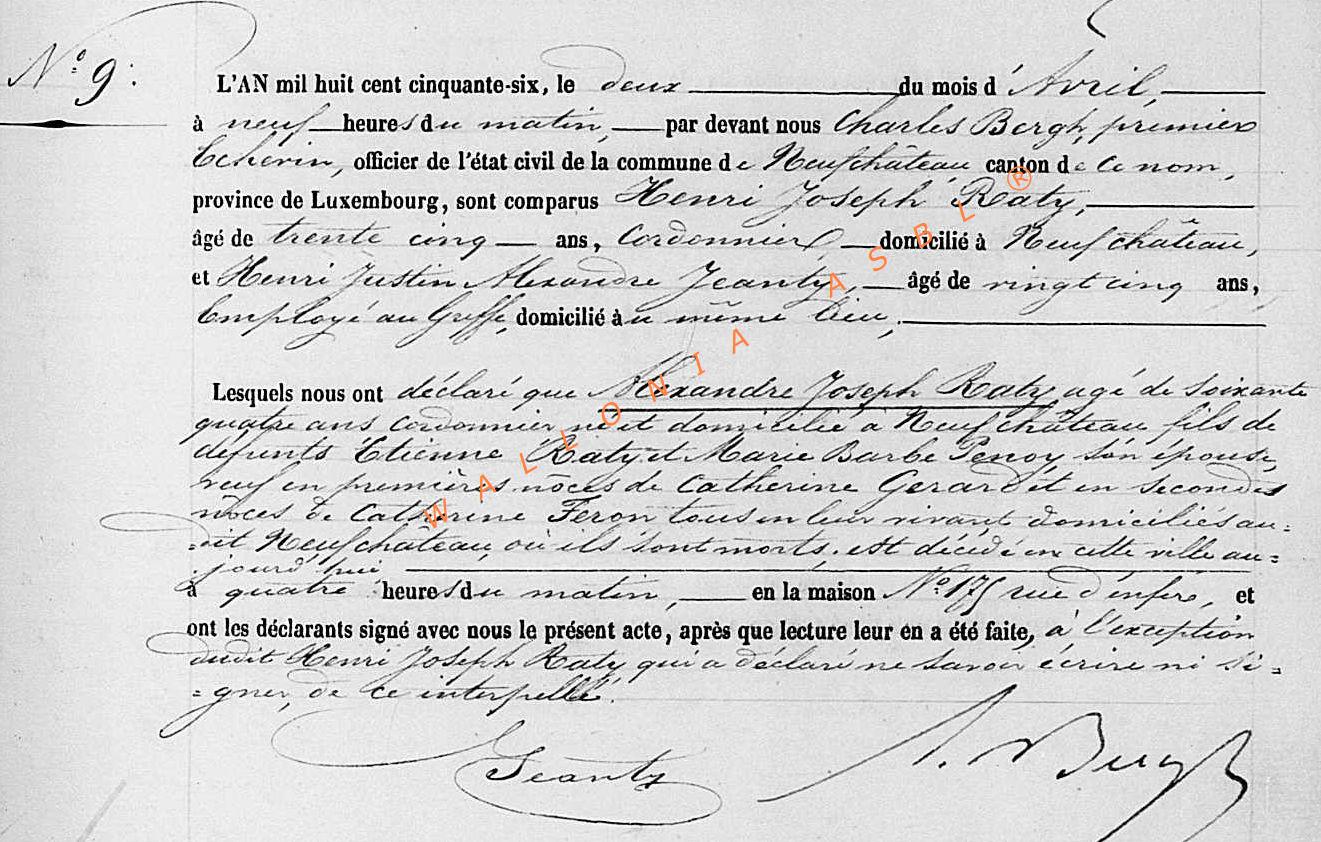 N.o 9.
L'AN mil huit cent cinquante-six, le deux du mois d' Avril,
à neuf heures du matin, par devant nous Charles Bergh, premier
Echevin, officier de l'état civil de la commune de Neufchâteau canton de ce nom,
province de Luxembourg, sont comparus Henri Joseph Raty,
âgé de trente cinq ans, Cordonnier, domicilié à Neufchâteau,
et Henri Justin Alexandre Jeanty, âgé de vingt cinq ans,
Employé au Greffe, domicilié au même lieu,
Lesquels nous ont déclaré que Alexandre Joseph Raty agé de soixante
quatre ans cordonnier né et domicilié a Neufchâteau fils de
défunts Etienne Raty et Marie Barbe Penoy son épouse,
veuf en premières noces de Catherine Gerard et en secondes
noces de Catherine Feron tous en leur vivant domiciliés au=
=dit Neufchateau, où ils sont morts, est décédé en cette ville au=
=jourd'hui
à quatre heures du matin, en la maison No. 175 rue d'enfer, et
ont les déclarants signé avec nous le présent acte, après que lecture leur en a été faite, à l'exception
dudit Henri Joseph Raty qui a déclaré ne savoir écrire ni si=
=gner, de ce interpellé.
Jeanty
Bergh
WALLONIA ASBL ®